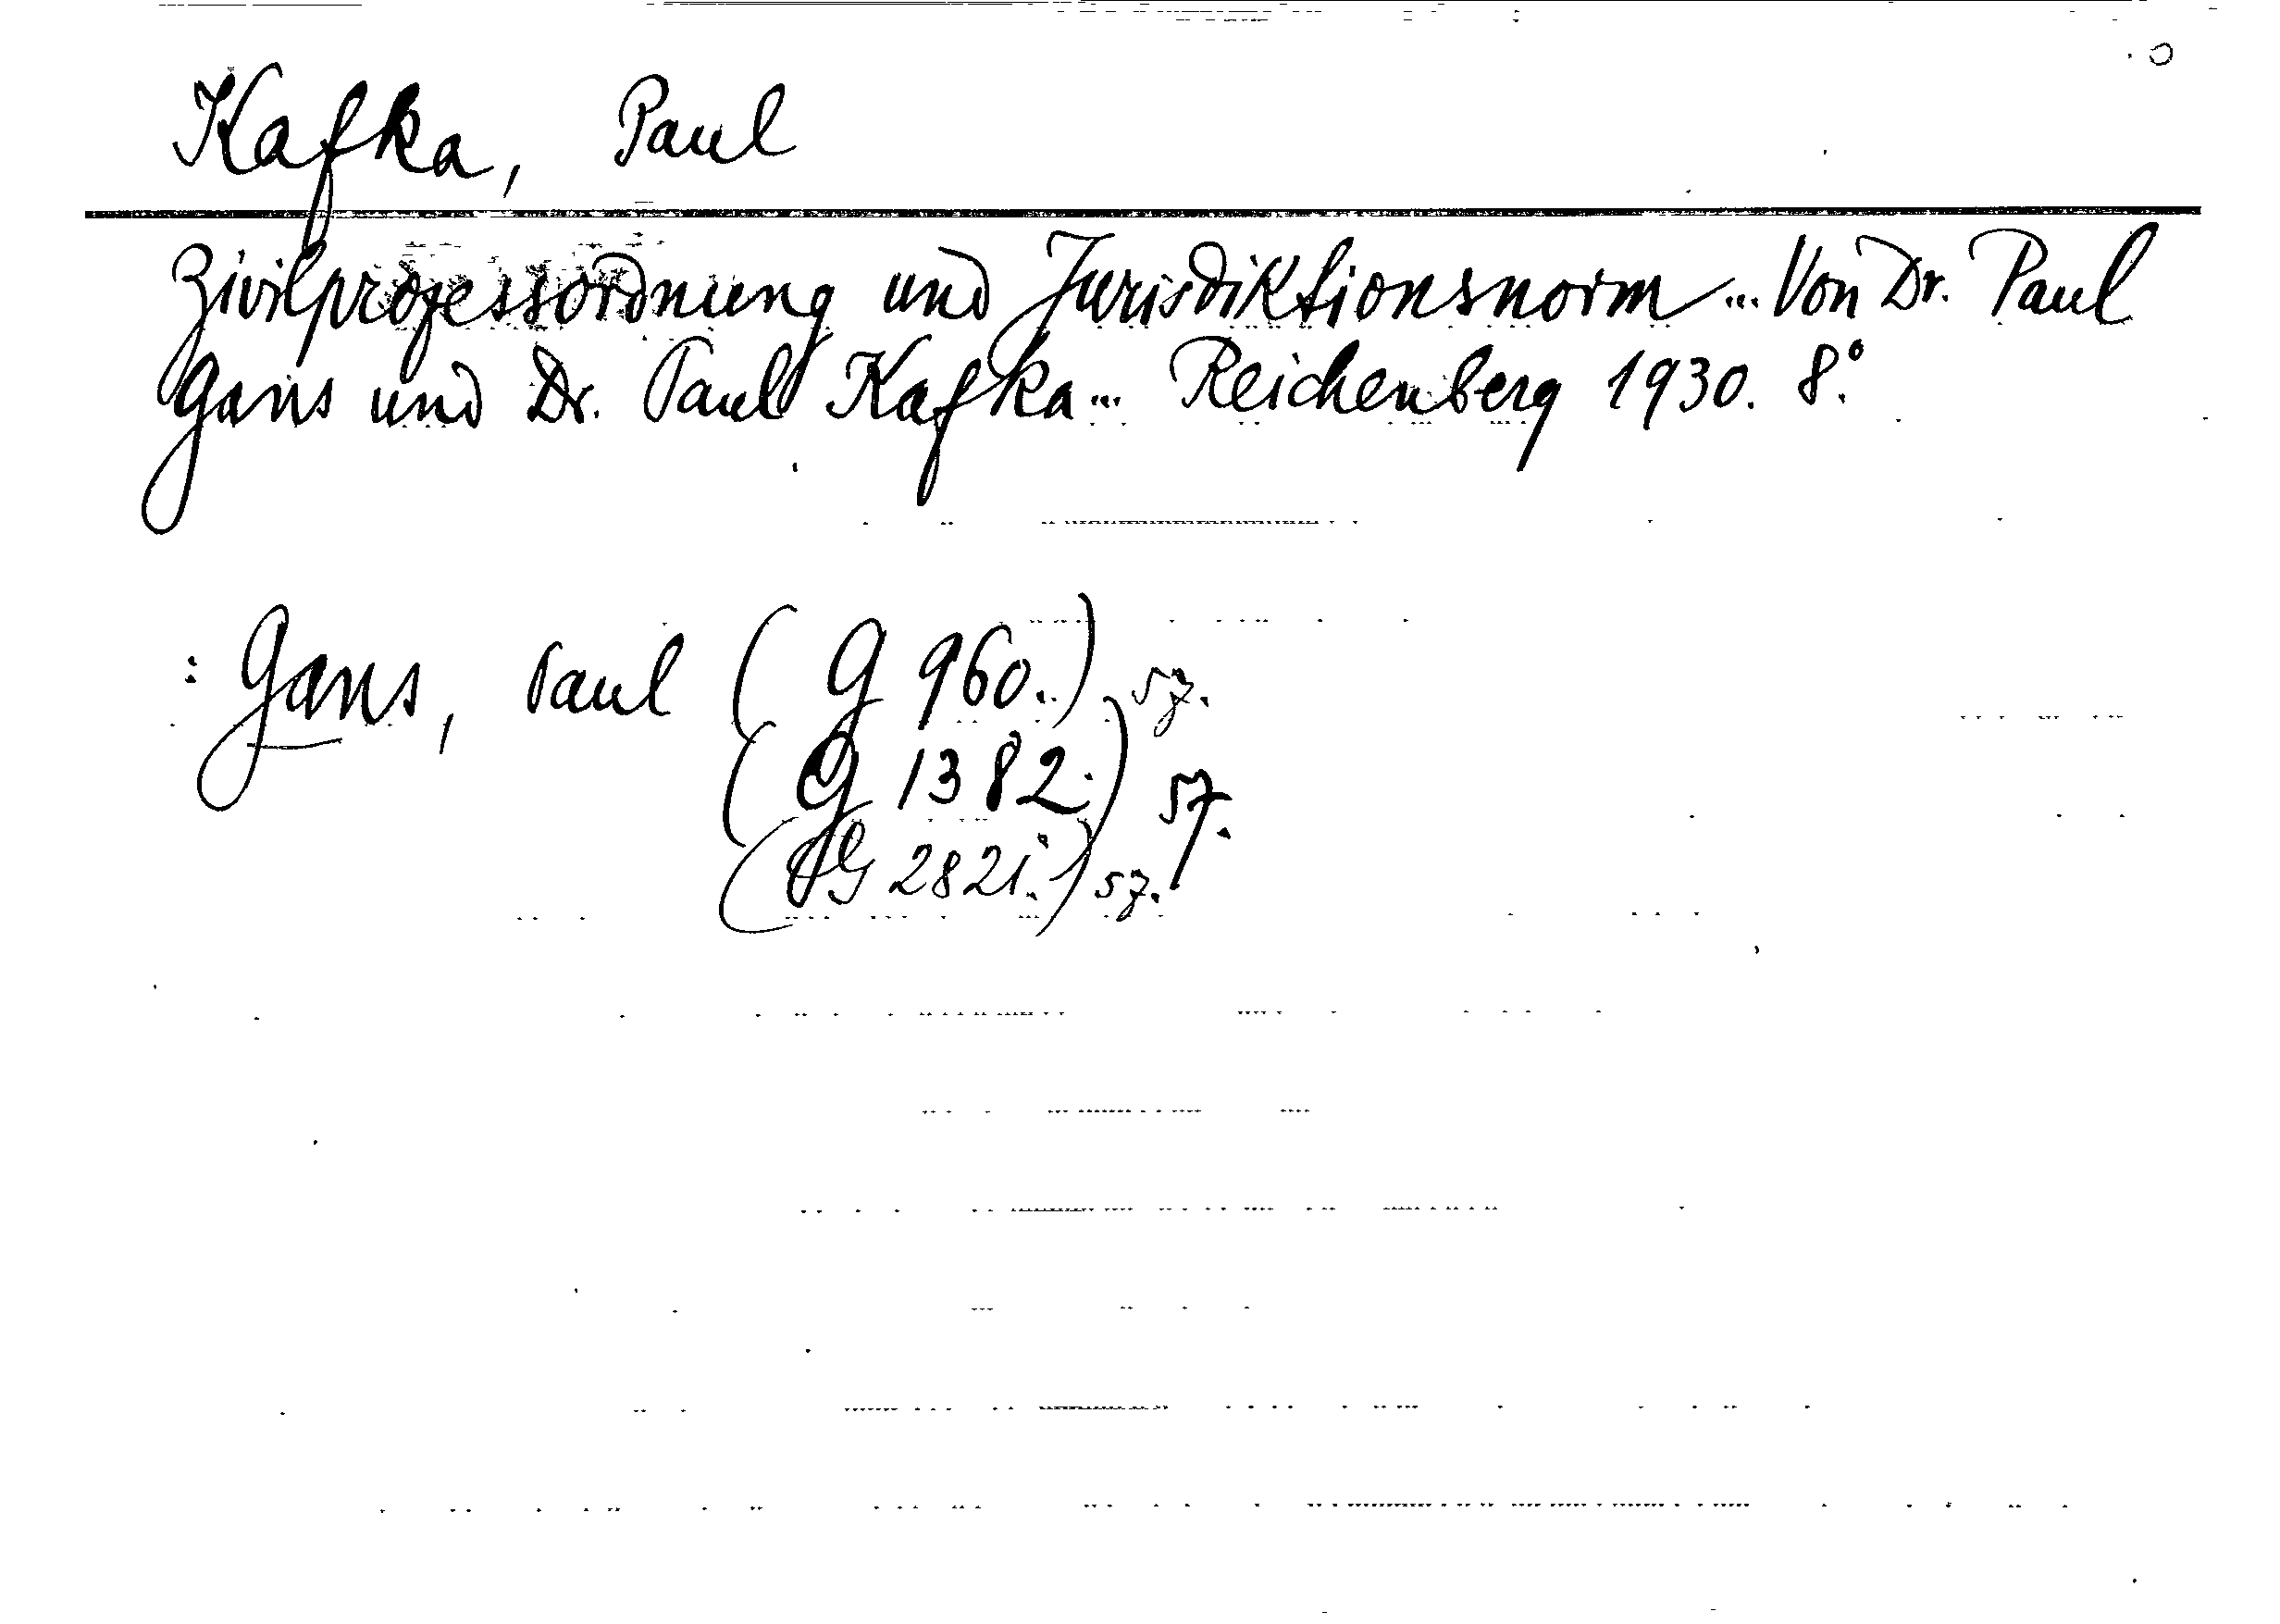 Kafka, Paul
Zivilprozessordnung und Jurisdiktionsnorm ... Von Dr. Paul
Gans und Dr. Paul Kafka ... Reichenberg 1930. 8.°
: Gans, Paul (G 960.) 57.
(G 1382.) 57.
(G 2821.) 57.